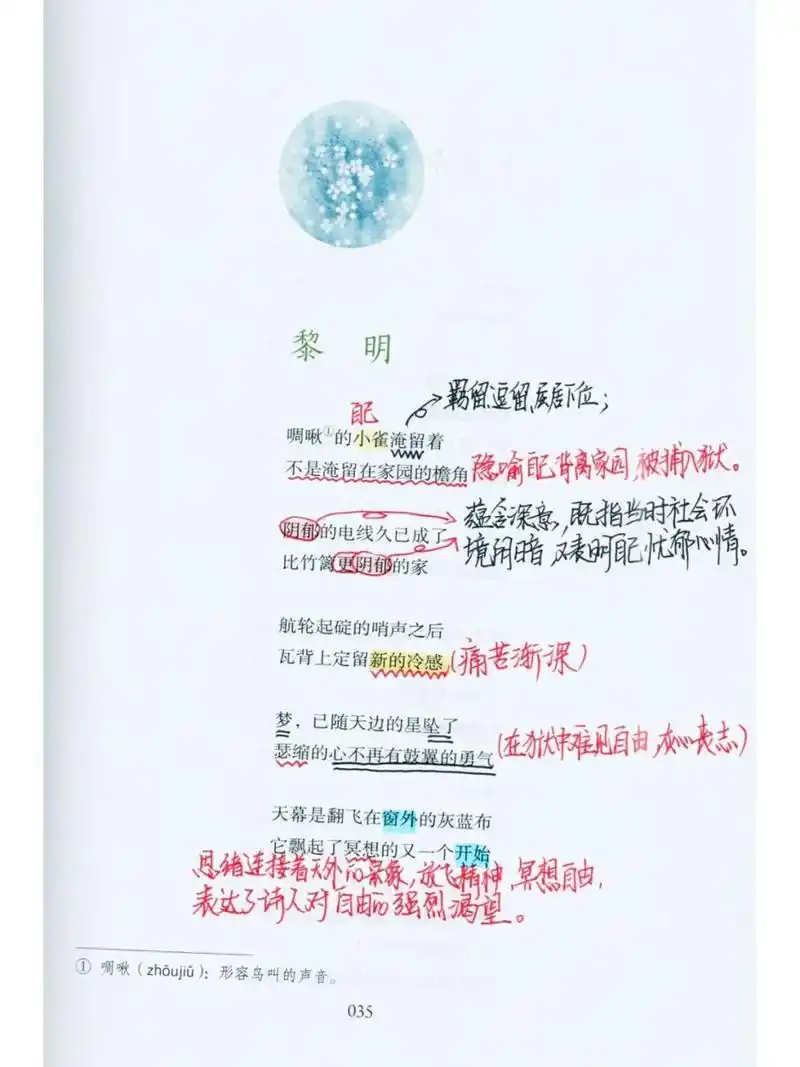 黎 明
自己
羁留、逗留、屈居下位；
啁啾①的小雀淹留着
不是淹留在家园的檐角
隐喻自己背离家园,被捕入狱。
阴郁的电线久已成了
比竹篱更阴郁的家
蕴含深意,既指当时社会环
境阴暗,又表明自己忧郁心情。
航轮起碇的哨声之后
瓦背上定留新的冷感
(痛苦渐深)
梦，已随天边的星坠了
瑟缩的心不再有鼓翼的勇气
(在狱中难见自由,灰心丧志)
天幕是翻飞在窗外的灰蓝布
它飘起了冥想的又一个开始
思绪连接着天外的景象,放飞精神,冥想自由,
表达了诗人对自由的强烈渴望。
① 啁啾（zhōujiū）：形容鸟叫的声音。
035